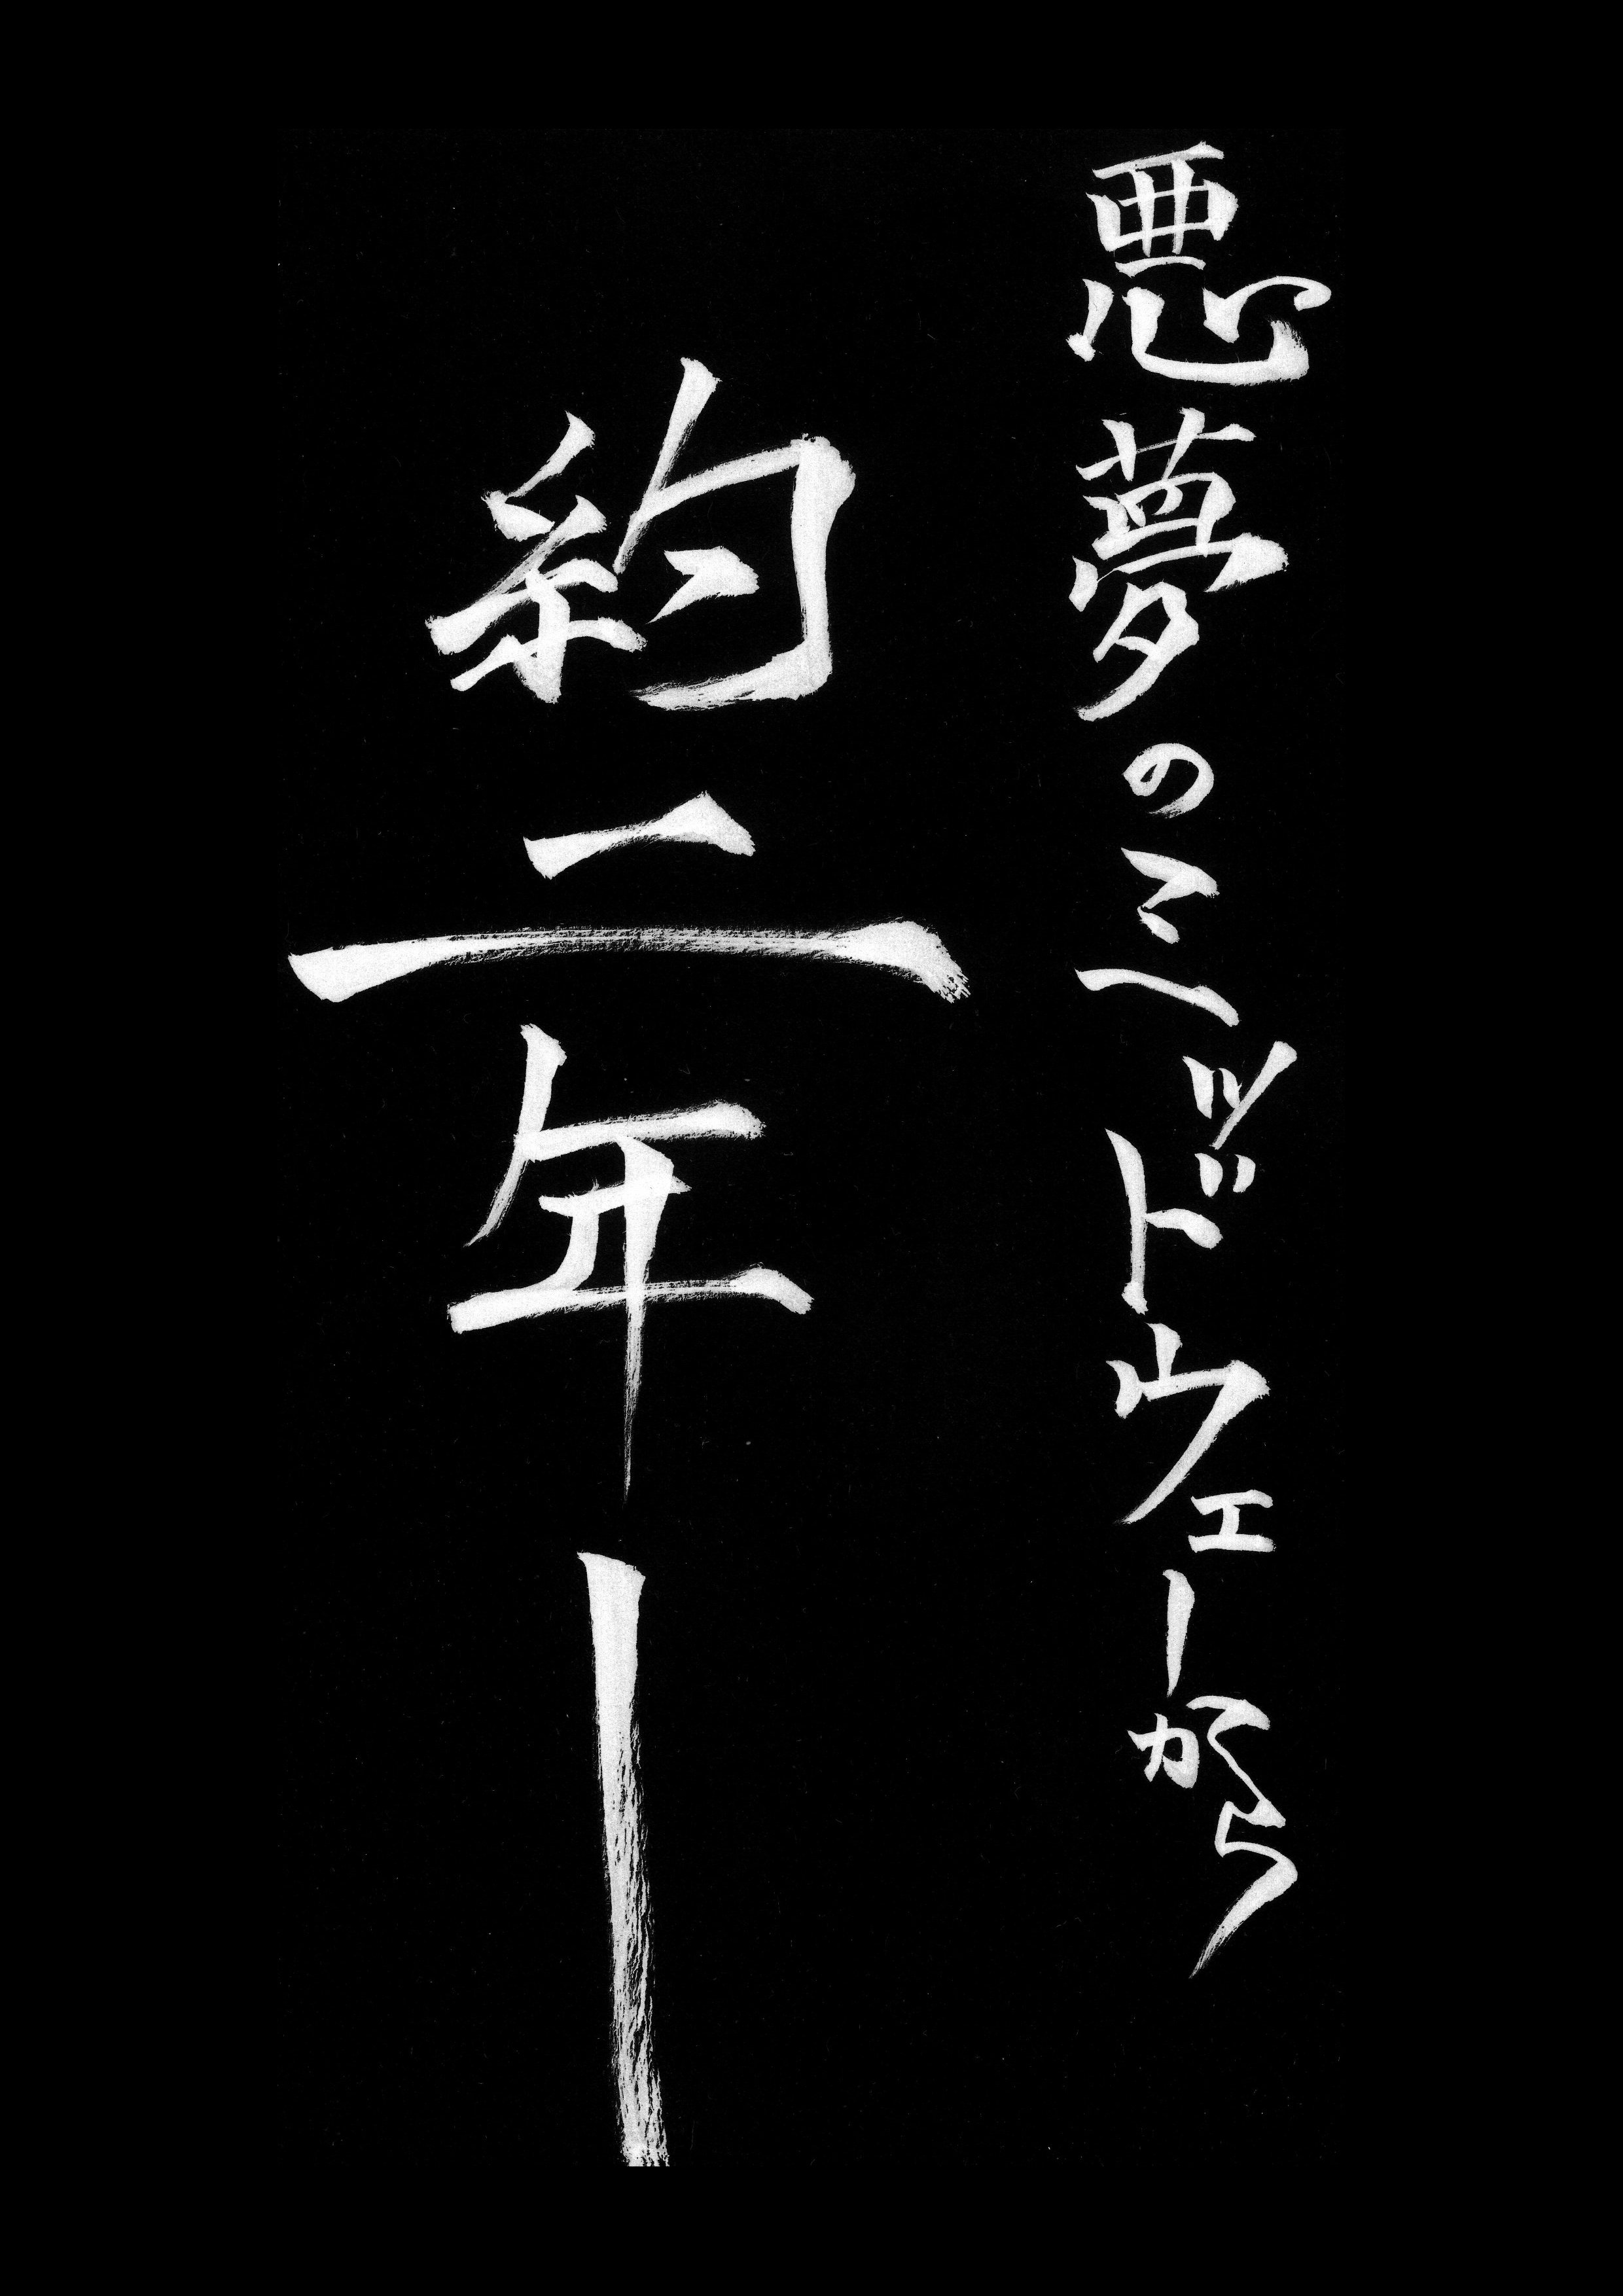 悪夢のミッドウェーから
約二年ー